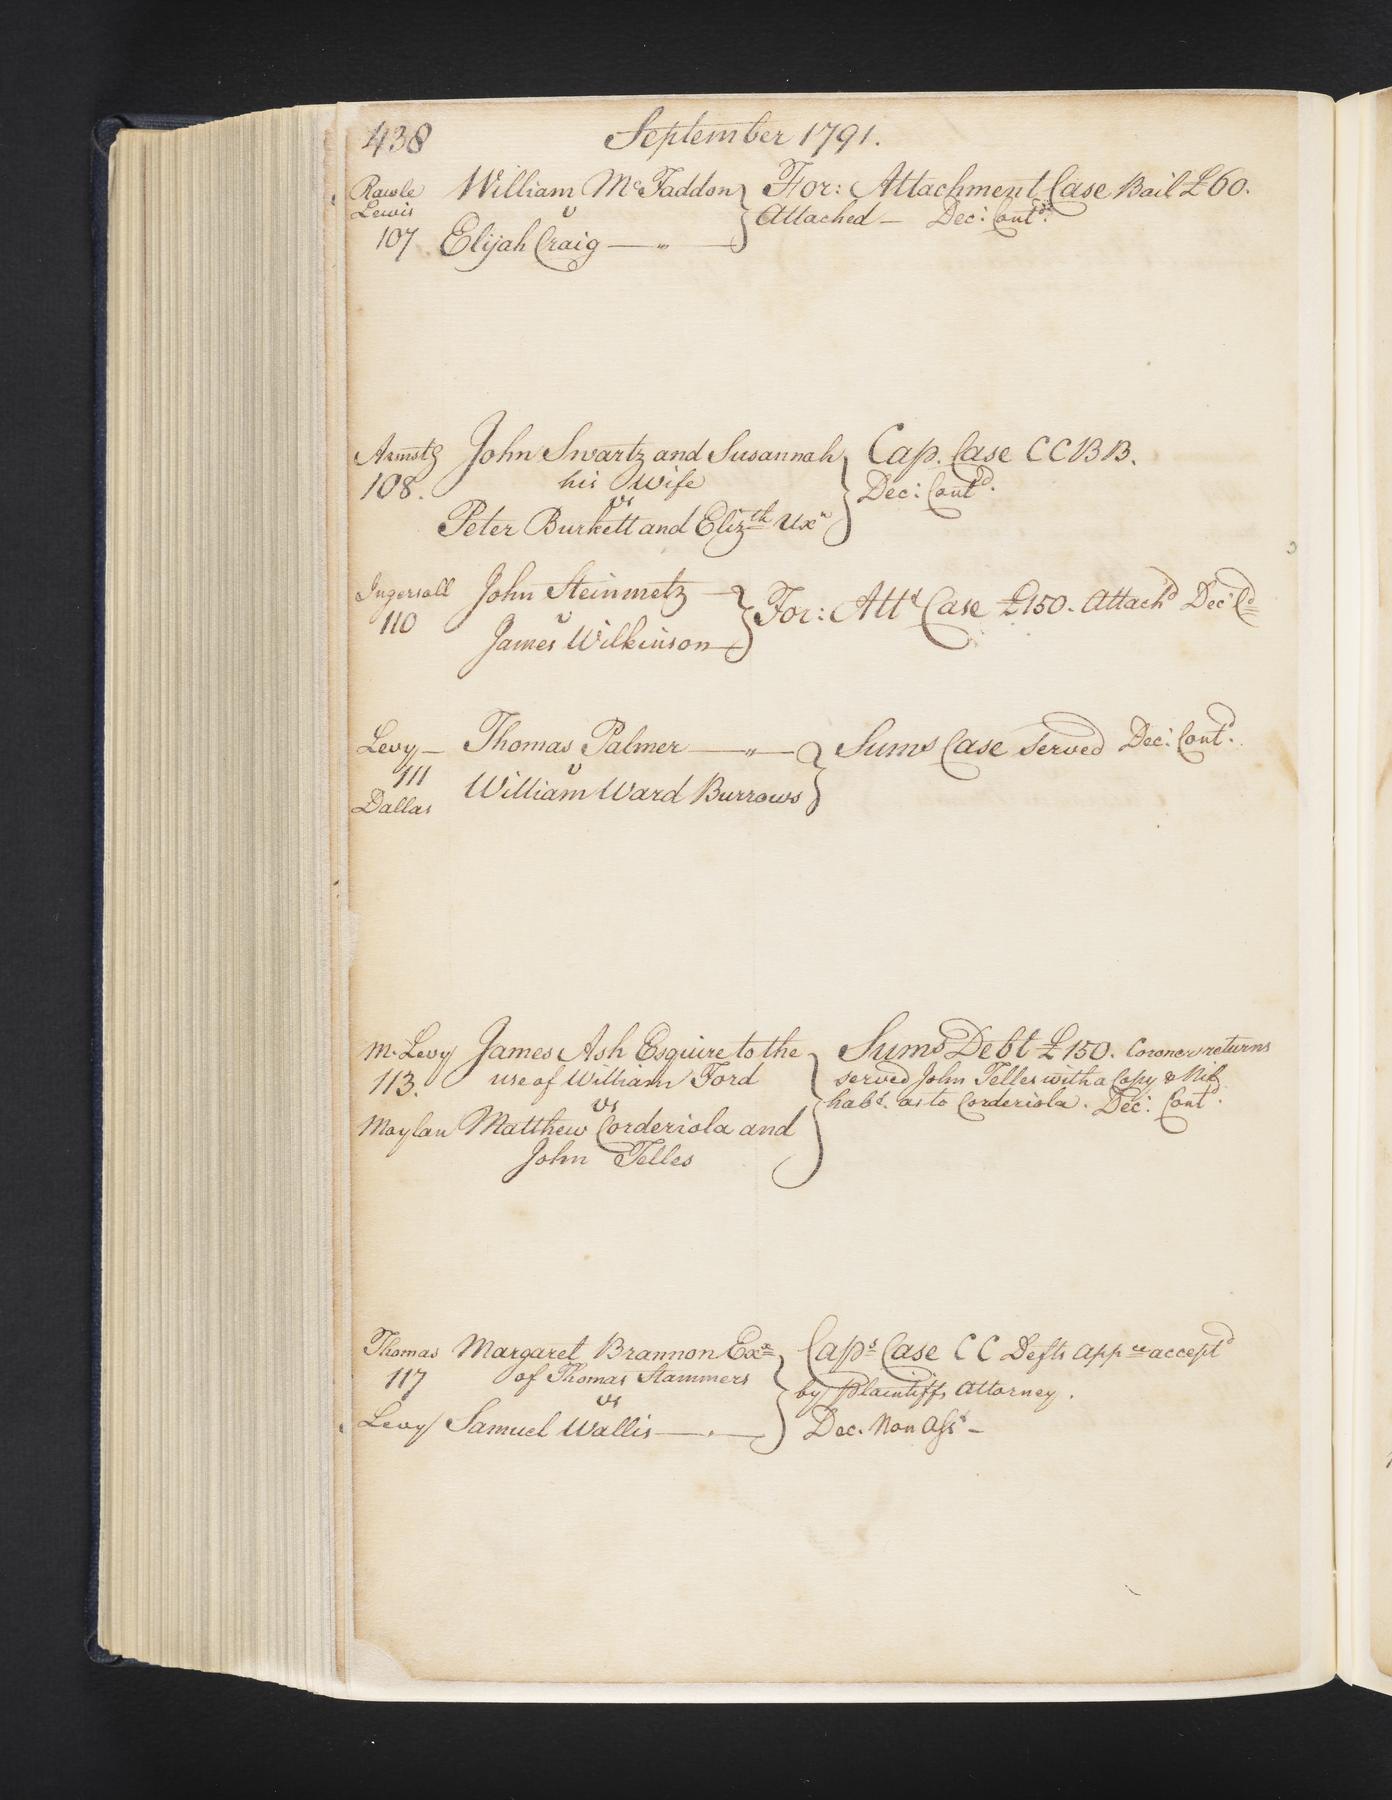 438 September 1791.
Rawle William McFaddon For: Attachment Case Bail £60.
Lewis v Attached — Dec: Contd.
107 Elijah Craig — „ —
Armstg John Swartz and Susannah Cap. Case CCBB.
108. his Wife Dec: Contd.
vs
Peter Burkett and Elizth Uxr
Ingersoll John Steinmetz — For: Attt Case £150. Attachd Dec: Cd
110 v
James Wilkinson —
Levy — Thomas Palmer — „ — Sums Case Served Dec: Contd.
111 v
Dallas William Ward Burrows
M. Levy James Ash Esquire to the Sums Debt £150. Coroner returns
113. use of William Ford served John Telles with a Copy & Nil
vs habt. as to Corderiola. Dec: Contd.
Moylan Matthew Corderiola and
John Telles
Thomas Margaret Brannon Exx Caps Case CC Defts Appce acceptd
117 of Thomas Stammers by Plaintiffs Attorney.
vs
Levy Samuel Wallis — . — Dec. Non Asst —